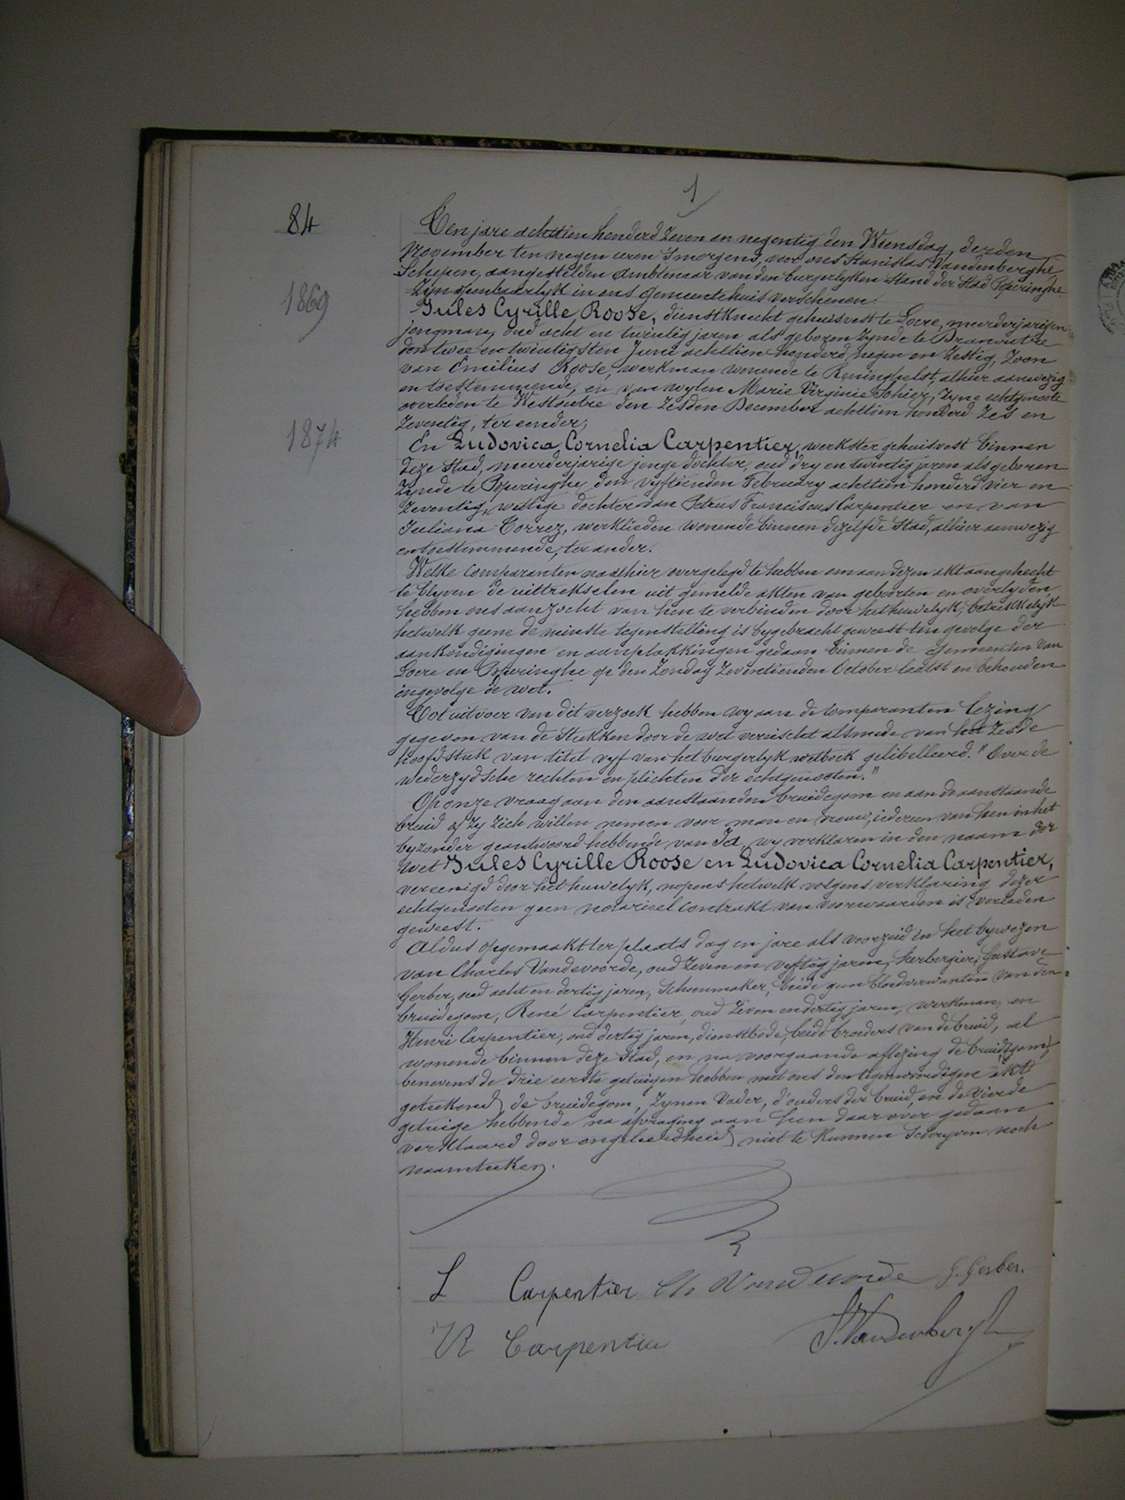 1
84
Ten jare achttien honderd zeven en negentig den Wensdag, derden
November ten negen uren s'morgens, voor ons Stanislas Vandenberghe
Schepen, aangestelden Ambtenaar van den burgerlyken stand der Stad Poperinghe
zyn openbaarlyk in ons Gemeentehuis verschenen:
1869
Jules Cyrille Roose, dienstknecht gehuisvest te Loere, meerderjarigen
jongman, oud acht en twintig jaren als geboren zynde te Dranoutre
den twee en twintigsten Juni achttien honderd negen en zestig, zoon
van Emilius Roose, werkman wonende te Reninghelst, alhier aanwezig
en toestemmende, en van wylen Marie Virginie Sohier, zyne echtgenoote
overleden te Westoutre den zesden December achttien honderd zes en
zeventig, ter eender;
1874
En Ludovica Cornelia Carpentier, werkster gehuisvest binnen
deze Stad, meerderjarige jonge dochter, oud dry en twintig jaren als geboren
zynde te Poperinghe den vyftienden February achttien honderd vier en
zeventig, wettige dochter van Petrus Franciscus Carpentier en van
Juliana Correz, werklieden wonende binnen dezelfde Stad, alhier aanwezig
en toestemmende, ter ander.
Welke comparanten na alhier overgelegd te hebben om aan dezen akt aangehecht
te blyven de uittrekselen uit gemelde akten van geboorten en overlyden
hebben ons aanzocht van hen te verbinden door het huwelyk, betrekkelyk
hetwelk geene de minste tegenstelling is bygebracht geweest ten gevolge der
aankondigingen en aanplakkingen gedaan binnen de Gemeenten van
Loere en Poperinghe op den Zondag zeventienden October laatst en behouden
ingevolge de wet.
Tot uitvoer van dit verzoek hebben wy aan de comparanten lezing
gegeven van de stukken door de wet vereischt alsmede van het zesde
hoofdstuk van titel vyf van het burgerlyk wetboek gelibelleerd: "Over de
wederzydsche rechten en plichten der echtgenooten."
Op onze vraag aan den aanstaanden bruidegom en aan de aanstaande
bruid of zy zich willen nemen voor man en vrouw, iedereen van hen in het
byzonder geantwoord hebbende van Ja, wy verklaren in den naam der
Wet Jules Cyrille Roose en Ludovica Cornelia Carpentier,
vereenigd door het huwelyk, nopens hetwelk volgens verklaring dezer
echtgenooten geen notarieel contrakt van voorwaarden is verleden
geweest.
Aldus opgemaakt ter plaats dag en jare als voorzeid in het bywezen
van Charles Vandevoorde, oud zeven en vyftig jaren, herbergier, Gustave
Gerber, oud acht en dertig jaren, Schoenmaker, beide geen bloedverwanten van den
bruidegom, René Carpentier, oud zeven en dertig jaren, werkman, en
Henri Carpentier, oud dertig jaren, dienstbode, beide broeders van de bruid, al
wonende binnen deze Stad, en na voorgaande aflezing de bruid
benevens de drie eerste getuigen hebben met ons den tegenwoordigen akt
geteekend, de bruidegom, zynen Vader, d'ouders der bruid, en de vierde
getuige hebbende na afvraging aan hen daar over gedaan
verklaard door ongeleerdheid niet te kunnen schryven noch
naamteeken.
L Carpentier Ch Vandevoorde G. Gerber.
R Carpentier S. Vandenberghe